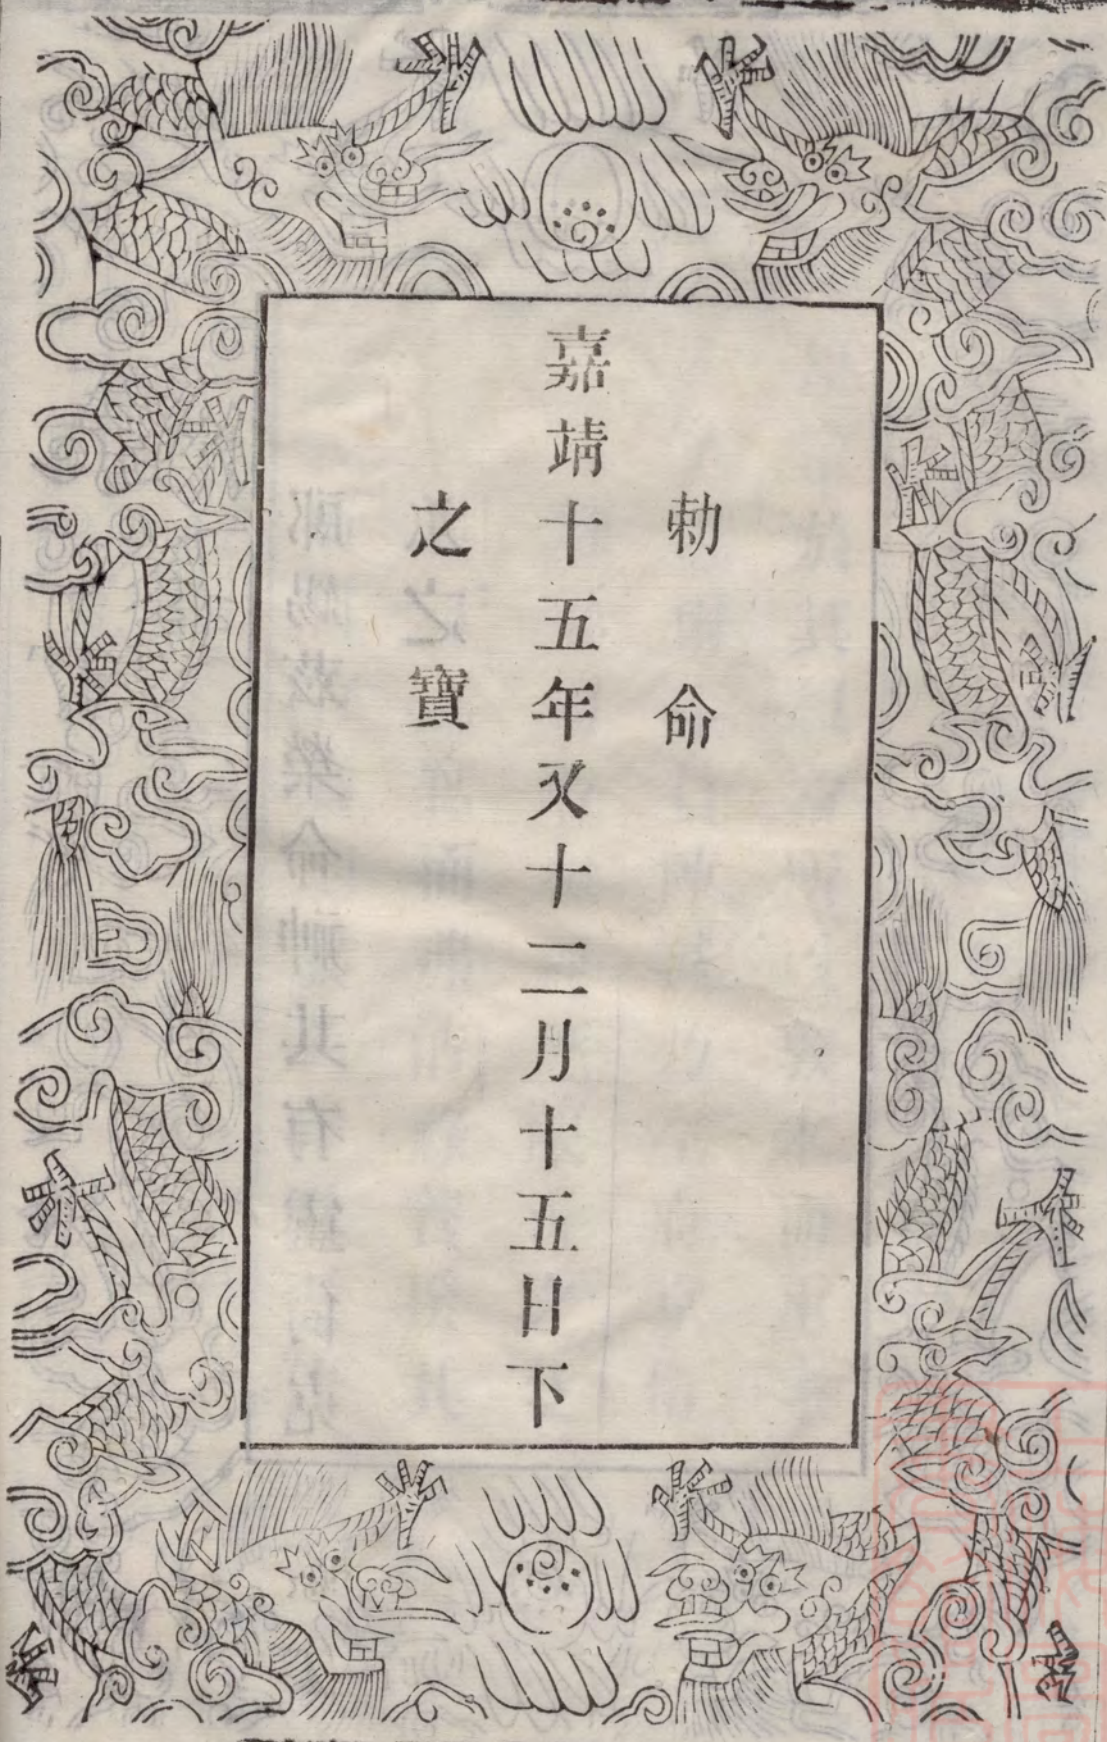 勅命
嘉靖十五年又十二月十五日下
之寶